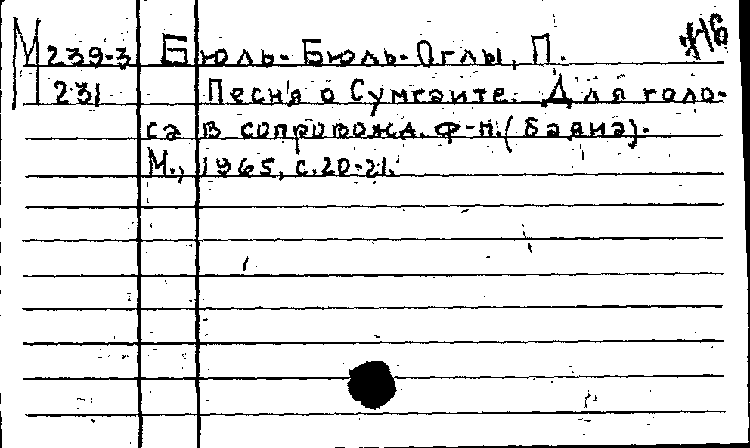 М 239-3 Бюль-Бюль-Оглы, П.
231 Песня о Сумгаите. Для голо-
са в сопровожд. ф-п. (баяна).
М., 1965, с. 20-21.